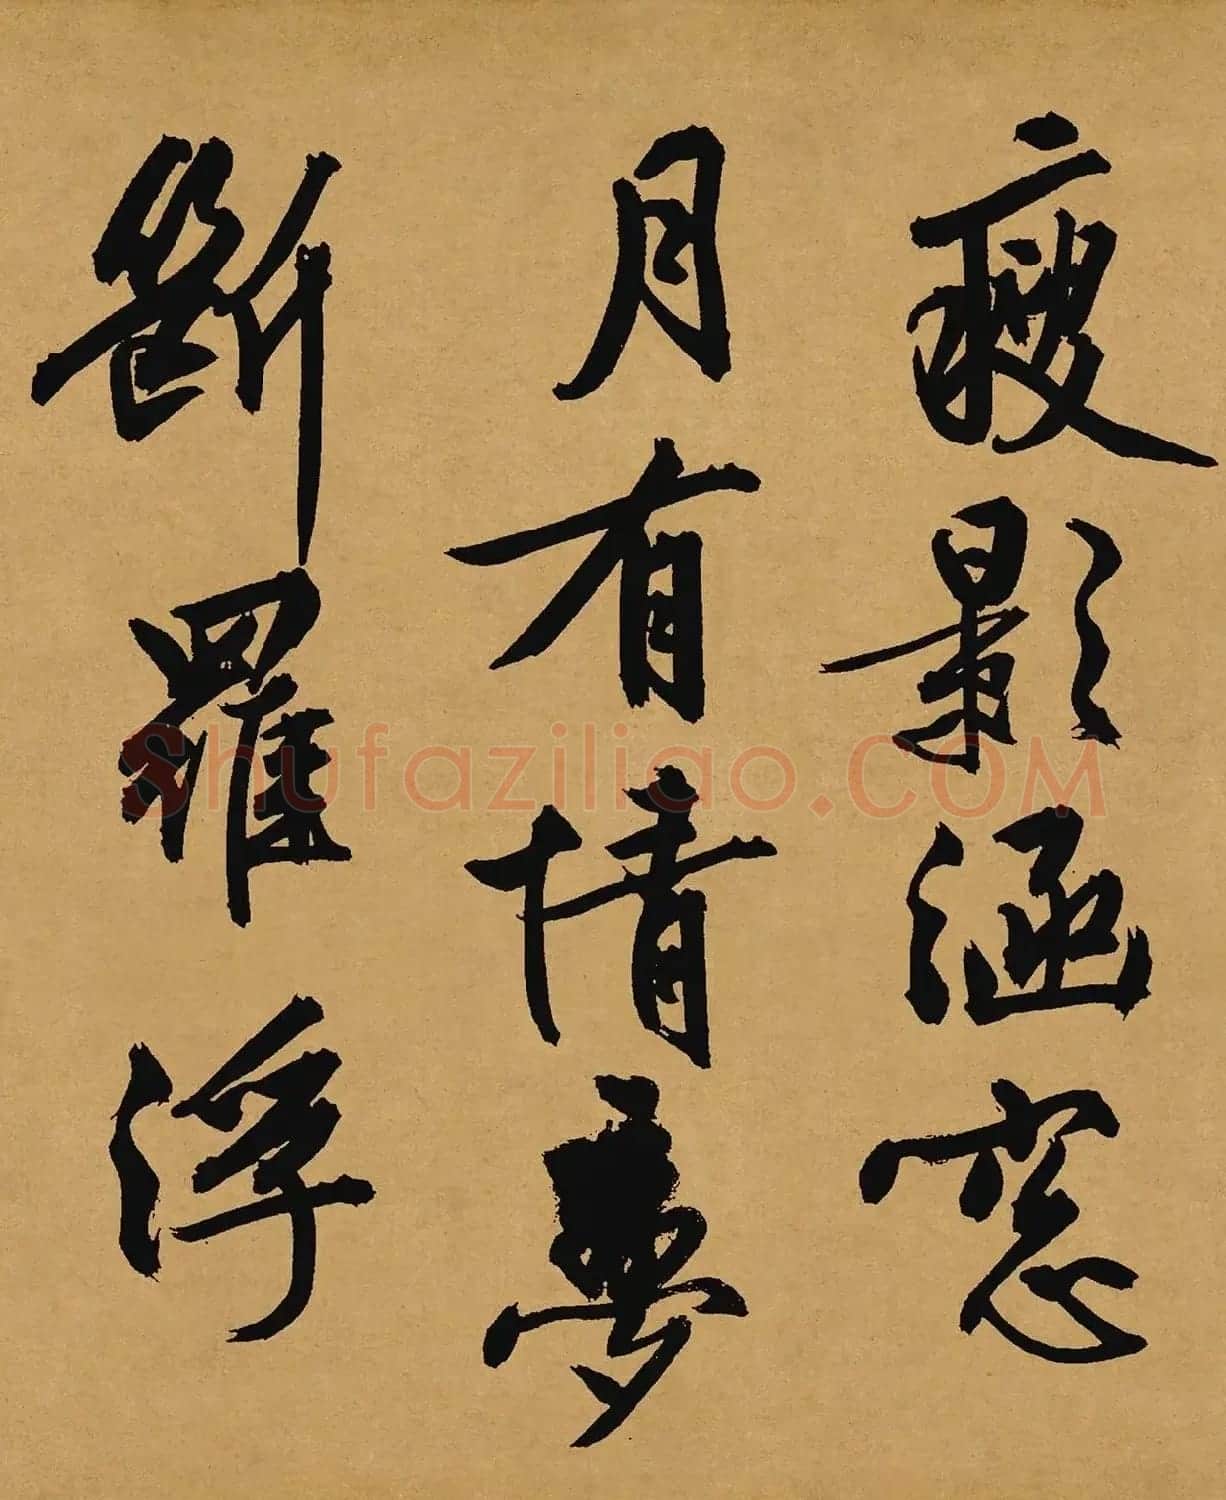 瘦影涵窓
月有情夢
斷羅浮
Shufaziliao.COM